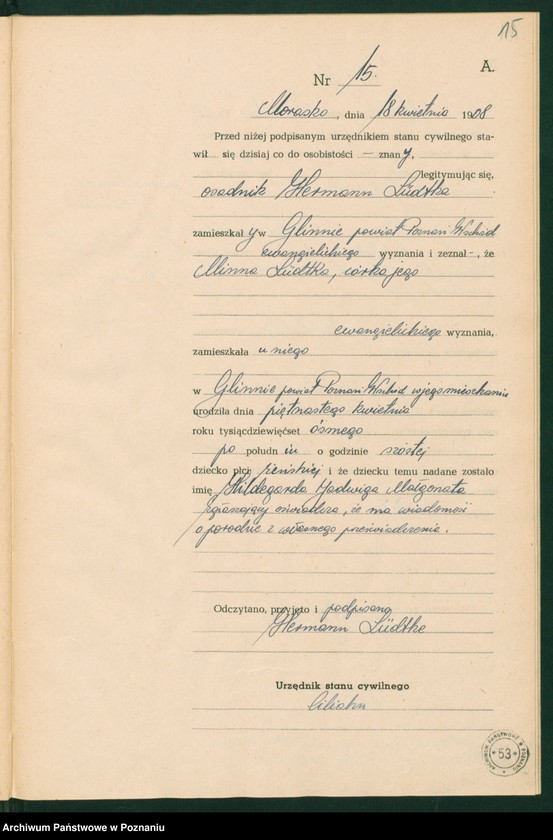 15
Nr 15.
A.
Morasko, dnia 18 kwietnia 1908
Przed niżej podpisanym urzędnikiem stanu cywilnego sta-
wił się dzisiaj co do osobistości — znany,
legitymując się,
osadnik Hermann Lüdtka
zamieszkały w Glinnie powiat Poznań Wschód
ewangielickiego wyznania i zeznał -, że
Minna Lüdtka, córka jego
ewangielickiego wyznania,
zamieszkała u niego
w Glinnie powiat Poznań Wschód w jego mieszkaniu
urodziła dnia piętnastego kwietnia
roku tysiącdziewięćset ósmego
po południu o godzinie szóstej
dziecko płci żeńskiej i że dziecku temu nadane zostało
imię Hildegarda Jadwiga Małgorzata
zgłaszający oświadcza, że ma wiadomość
o porodzie z własnego przeświadczenia.
Odczytano, przyjęto i podpisano
Hermann Lüdtke
Urzędnik stanu cywilnego
ARCHIWUM PAŃSTWOWE W POZNANIU
53
Archiwum Państwowe w Poznaniu